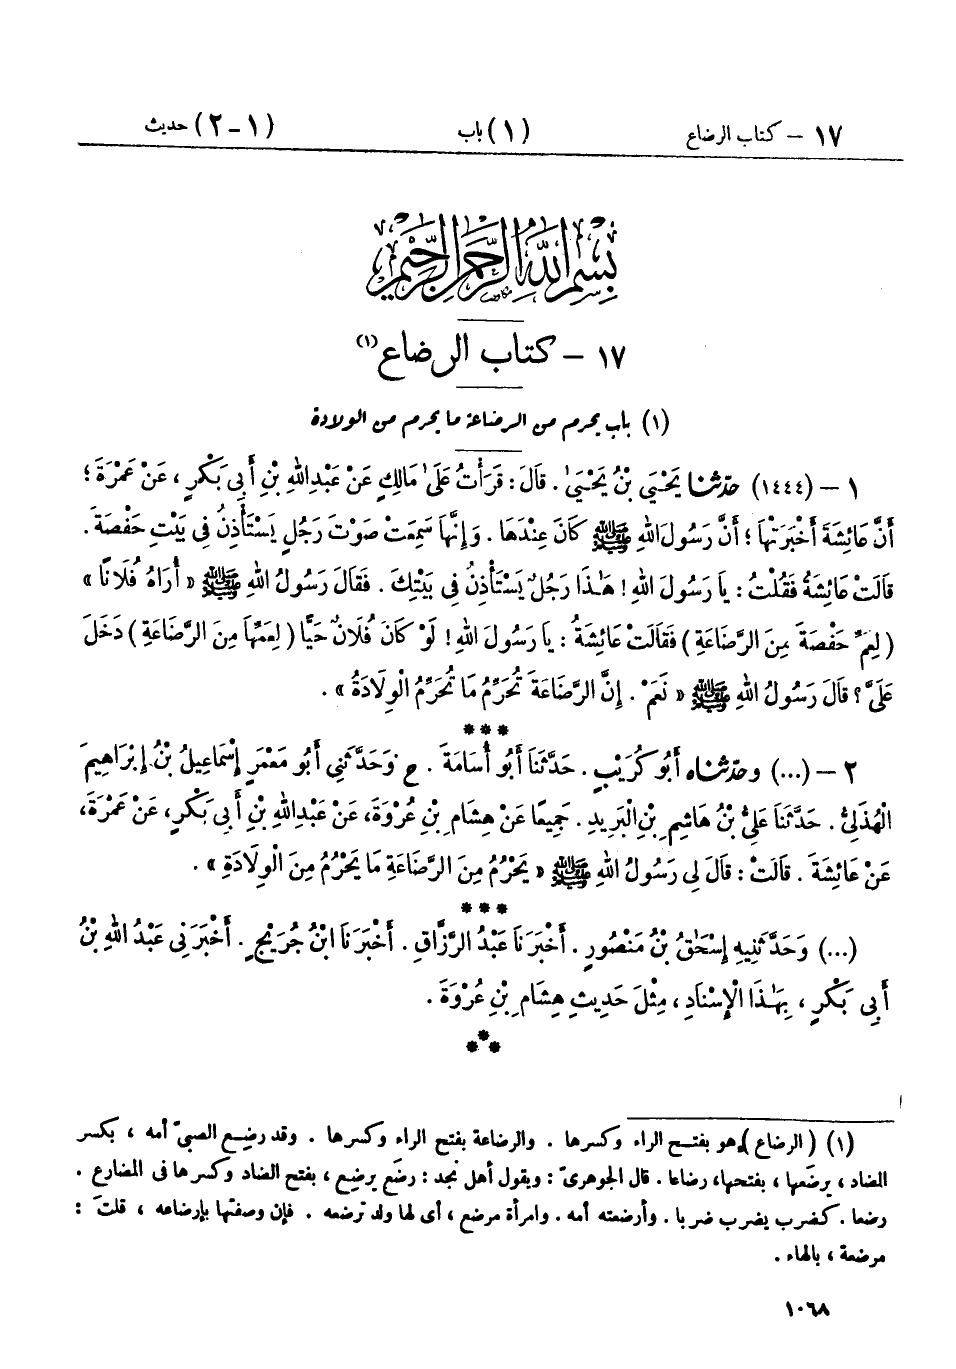 ١٧ – كتاب الرضاع (١) باب (١-٢) حديث
بِسْمِ اللهِ الرَّحْمٰنِ الرَّحِيمِ
١٧ – كتاب الرضاع (١)
(١) باب يحرم من الرضاعة ما يحرم من الولادة
١ – (١٤٤٤) حدّثنا يَحْيَىٰ بْنُ يَحْيَىٰ . قَالَ : قَرَأْتُ عَلَىٰ مَالِكٍ عَنْ عَبْدِ اللهِ بْنِ أَبِي بَكْرٍ ، عَنْ عَمْرَةَ ؛
أَنَّ عَائِشَةَ أَخْبَرَتْهَا ؛ أَنَّ رَسُولَ اللهِ ﷺ كَانَ عِنْدَهَا . وَإِنَّهَا سَمِعَتْ صَوْتَ رَجُلٍ يَسْتَأْذِنُ فِي بَيْتِ حَفْصَةَ .
قَالَتْ عَائِشَةُ فَقُلْتُ : يَا رَسُولَ اللهِ ! هٰذَا رَجُلٌ يَسْتَأْذِنُ فِي بَيْتِكَ . فَقَالَ رَسُولُ اللهِ ﷺ « أُرَاهُ فُلَانًا »
( لِعَمِّ حَفْصَةَ مِنَ الرَّضَاعَةِ ) فَقَالَتْ عَائِشَةُ : يَا رَسُولَ اللهِ ! لَوْ كَانَ فُلَانٌ حَيًّا ( لِعَمِّهَا مِنَ الرَّضَاعَةِ ) دَخَلَ
عَلَيَّ ؟ قَالَ رَسُولُ اللهِ ﷺ « نَعَمْ . إِنَّ الرَّضَاعَةَ تُحَرِّمُ مَا تُحَرِّمُ الْوِلَادَةُ » .
***
٢ – (...) وحدّثناه أَبُو كُرَيْبٍ . حَدَّثَنَا أَبُو أُسَامَةَ . ح وَحَدَّثَنِي أَبُو مَعْمَرٍ إِسْمَاعِيلُ بْنُ إِبْرَاهِيمَ
الْهُذَلِيُّ . حَدَّثَنَا عَلِيُّ بْنُ هَاشِمِ بْنِ الْبَرِيدِ . جَمِيعًا عَنْ هِشَامِ بْنِ عُرْوَةَ، عَنْ عَبْدِ اللهِ بْنِ أَبِي بَكْرٍ، عَنْ عَمْرَةَ،
عَنْ عَائِشَةَ . قَالَتْ : قَالَ لِي رَسُولُ اللهِ ﷺ « يَحْرُمُ مِنَ الرَّضَاعَةِ مَا يَحْرُمُ مِنَ الْوِلَادَةِ » .
***
(...) وَحَدَّثَنِيهِ إِسْحَاقُ بْنُ مَنْصُورٍ . أَخْبَرَنَا عَبْدُ الرَّزَّاقِ . أَخْبَرَنَا ابْنُ جُرَيْجٍ . أَخْبَرَنِي عَبْدُ اللهِ بْنُ
أَبِي بَكْرٍ ، بِهٰذَا الْإِسْنَادِ ، مِثْلَ حَدِيثِ هِشَامِ بْنِ عُرْوَةَ .
***
(١) ( الرضاع ) هو بفتح الراء وكسرها . والرضاعة بفتح الراء وكسرها . وقد رضِع الصبيّ أمه ، بكسر
الضاد ، يرضَعها ، بفتحها، رضاعا . قال الجوهريّ : ويقول أهل نجد : رضَع يرضِع ، بفتح الضاد وكسرها فى المضارع .
رضعا . كضرب يضرب ضربا . وأرضعته أمه . وامرأة مرضع ، أى لها ولد ترضعه . فإن وصفتها بإرضاعه ، قلت :
مرضعة ، بالهاء .
١٠٦٨